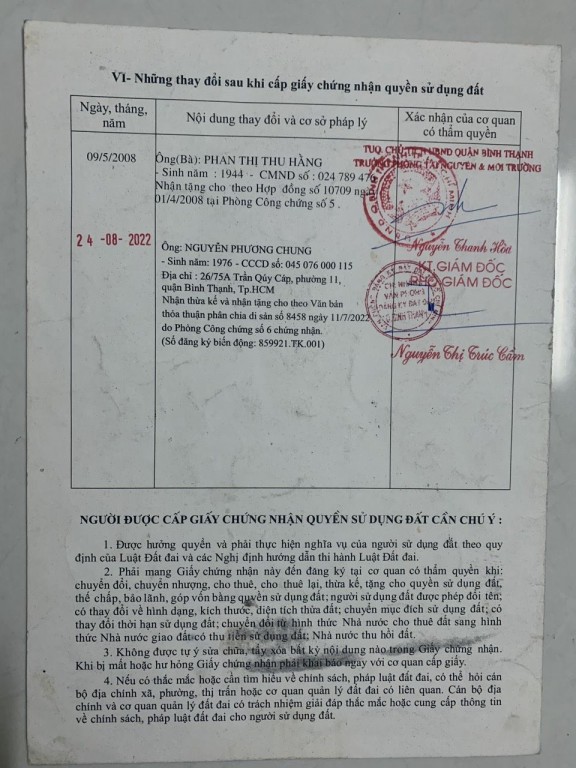 VI- Những thay đổi sau khi cấp giấy chứng nhận quyền sử dụng đất
Ngày, tháng, năm
Nội dung thay đổi và cơ sở pháp lý
Xác nhận của cơ quan có thẩm quyền
09/5/2008
Ông(Bà): PHAN THỊ THU HẰNG
- Sinh năm : 1944 - CMND số : 024 789 47
Nhận tặng cho theo Hợp đồng số 10709 ngày
01/4/2008 tại Phòng Công chứng số 5 .
TUQ. CHỦ TỊCH UBND QUẬN BÌNH THẠNH
TRƯỞNG PHÒNG TÀI NGUYÊN & MÔI TRƯỜNG
Nguyễn Thanh Hòa
24 -08- 2022
Ông: NGUYỄN PHƯƠNG CHUNG
- Sinh năm: 1976 - CCCD số: 045 076 000 115
Địa chỉ : 26/75A Trần Qúy Cáp, phường 11,
quận Bình Thạnh, Tp.HCM
Nhận thừa kế và nhận tặng cho theo Văn bản
thỏa thuận phân chia di sản số 8458 ngày 11/7/2022
do Phòng Công chứng số 6 chứng nhận.
(Số đăng ký biến động: 859921.TK.001)
KT.GIÁM ĐỐC
PHÓ GIÁM ĐỐC
CHI NHÁNH
VĂN PHÒNG
ĐĂNG KÝ ĐẤT ĐAI
Q. BÌNH THẠNH
Nguyễn Thị Trúc Cầm
NGƯỜI ĐƯỢC CẤP GIẤY CHỨNG NHẬN QUYỀN SỬ DỤNG ĐẤT CẦN CHÚ Ý :
1. Được hưởng quyền và phải thực hiện nghĩa vụ của người sử dụng đất theo quy
định của Luật Đất đai và các Nghị định hướng dẫn thi hành Luật Đất đai.
2. Phải mang Giấy chứng nhận này đến đăng ký tại cơ quan có thẩm quyền khi:
chuyển đổi, chuyển nhượng, cho thuê, cho thuê lại, thừa kế, tặng cho quyền sử dụng đất,
thế chấp, bảo lãnh, góp vốn bằng quyền sử dụng đất; người sử dụng đất được phép đổi tên;
có thay đổi về hình dạng, kích thước, diện tích thửa đất; chuyển mục đích sử dụng đất; có
thay đổi thời hạn sử dụng đất; chuyển đổi từ hình thức Nhà nước cho thuê đất sang hình
thức Nhà nước giao đất có thu tiền sử dụng đất; Nhà nước thu hồi đất.
3. Không được tự ý sửa chữa, tẩy xóa bất kỳ nội dung nào trong Giấy chứng nhận.
Khi bị mất hoặc hư hỏng Giấy chứng nhận phải khai báo ngay với cơ quan cấp giấy.
4. Nếu có thắc mắc hoặc cần tìm hiểu về chính sách, pháp luật đất đai, có thể hỏi cán
bộ địa chính xã, phường, thị trấn hoặc cơ quan quản lý đất đai có liên quan. Cán bộ địa
chính và cơ quan quản lý đất đai có trách nhiệm giải đáp thắc mắc hoặc cung cấp thông tin
về chính sách, pháp luật đất đai cho người sử dụng đất.